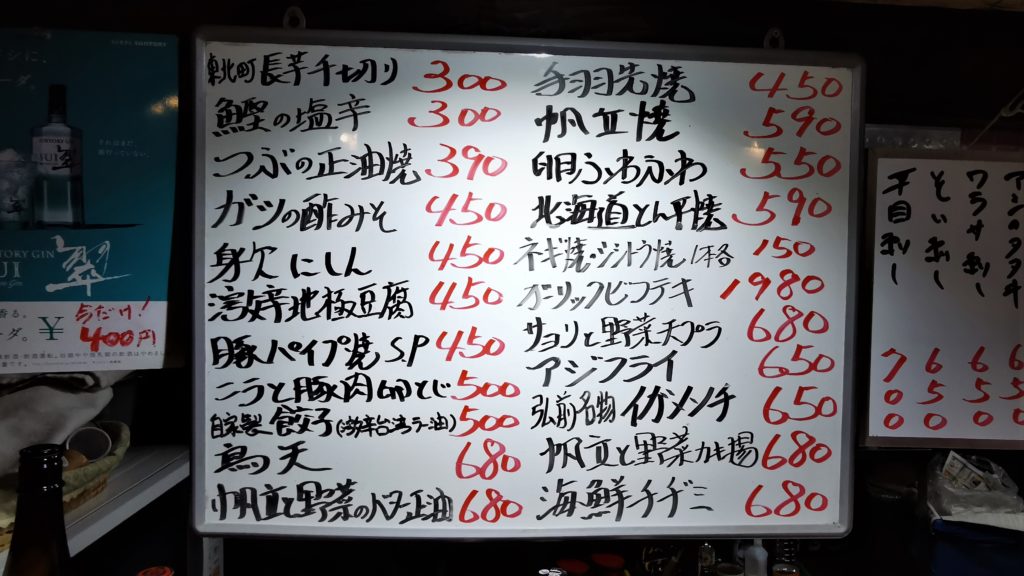 東北町長芋千切り 300
鰹の塩辛 300
つぶの正油焼 390
ガツの酢みそ 450
身欠にしん 450
地極豆腐 450
豚パイプ焼 S.P 450
ニラと豚肉卵とじ 500
自家製餃子(台湾ラー油) 500
鳥天 680
帆立と野菜のバター正油 680
手羽先焼 450
帆立焼 590
卵ふわふわ 550
北海道とん平焼 590
ネギ焼・シシトウ焼 1本各 150
ガーリックビフテキ 1980
サヨリと野菜天プラ 680
アジフライ 650
弘前名物イガメンチ 650
帆立と野菜カキ揚 680
海鮮チヂミ 680
ワラサ刺し 650
そい刺し 650
平目刺し 700
SUNTORY
翠
SUNTORY GIN
今だけ!
¥400円